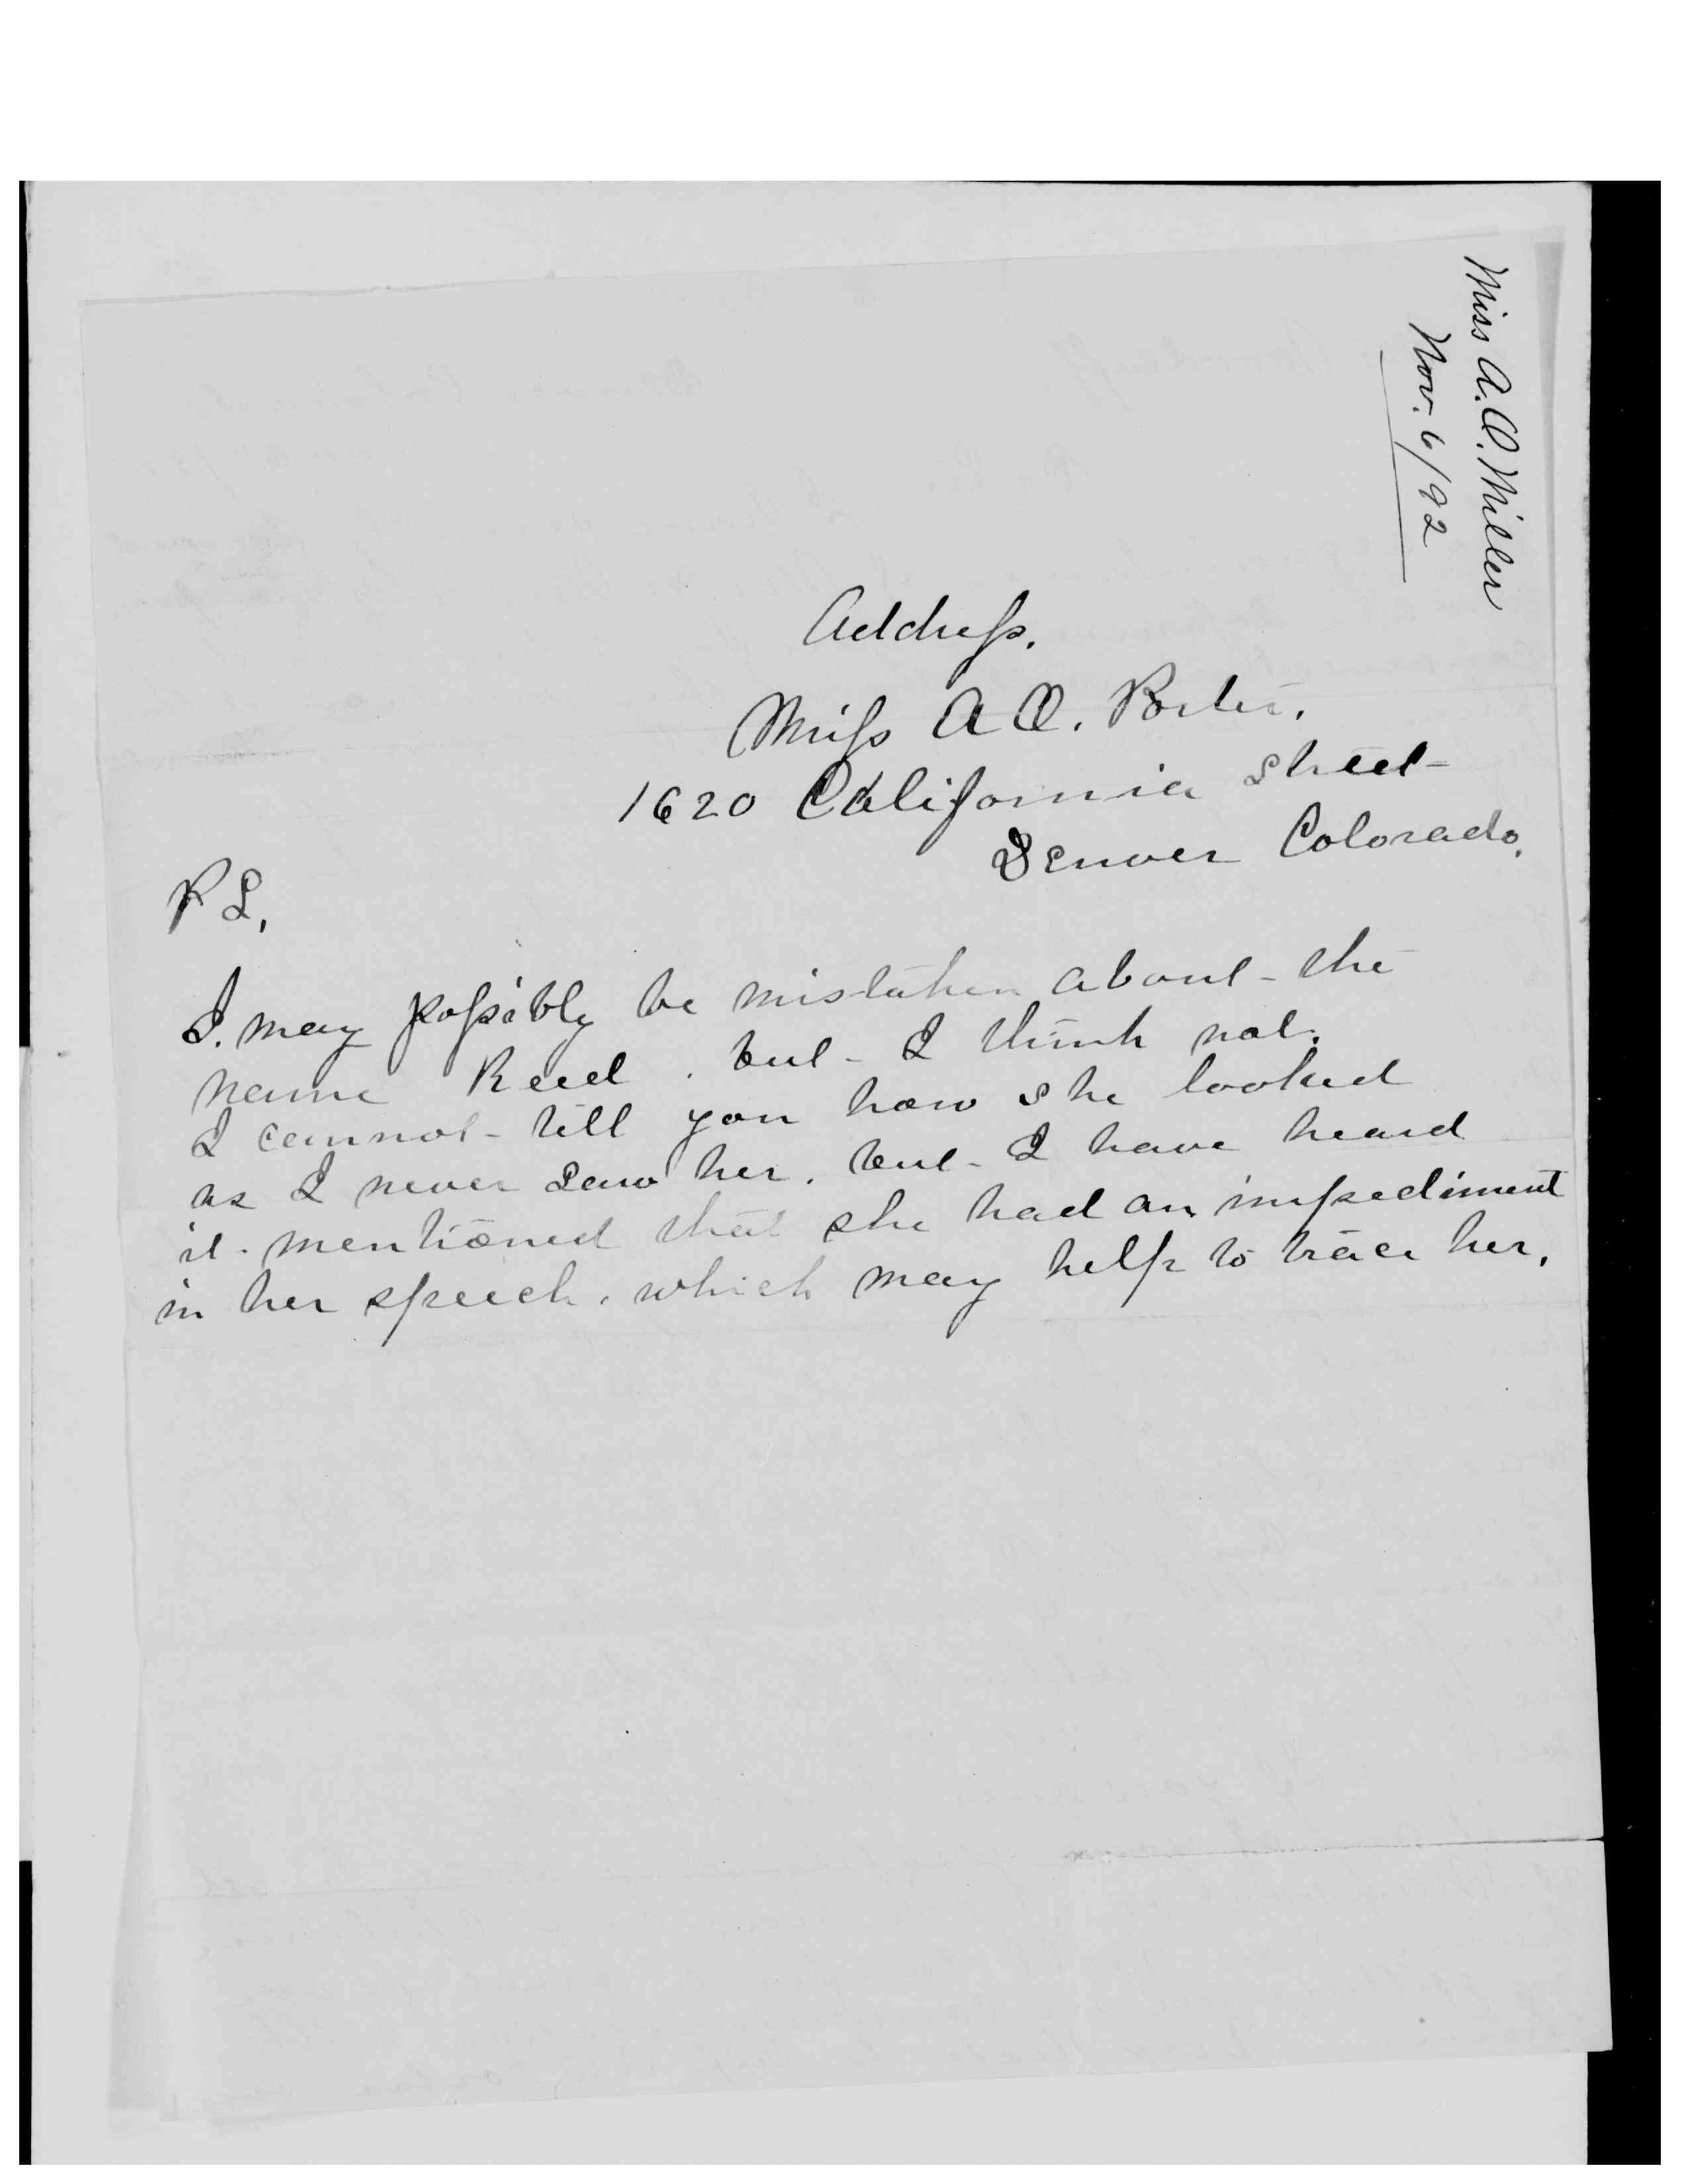 Miss A.O. Miller
Nov. 6/92
Address.
Miss A O. Porter.
1620 California Street
Denver Colorado.
P S.
I. may possibly be mistaken about the
name Reed. but I think not.
I cannot tell you how she looked
as I never saw her. but I have heard
it mentioned that she had an impediment
in her speech. which may help to trace her.